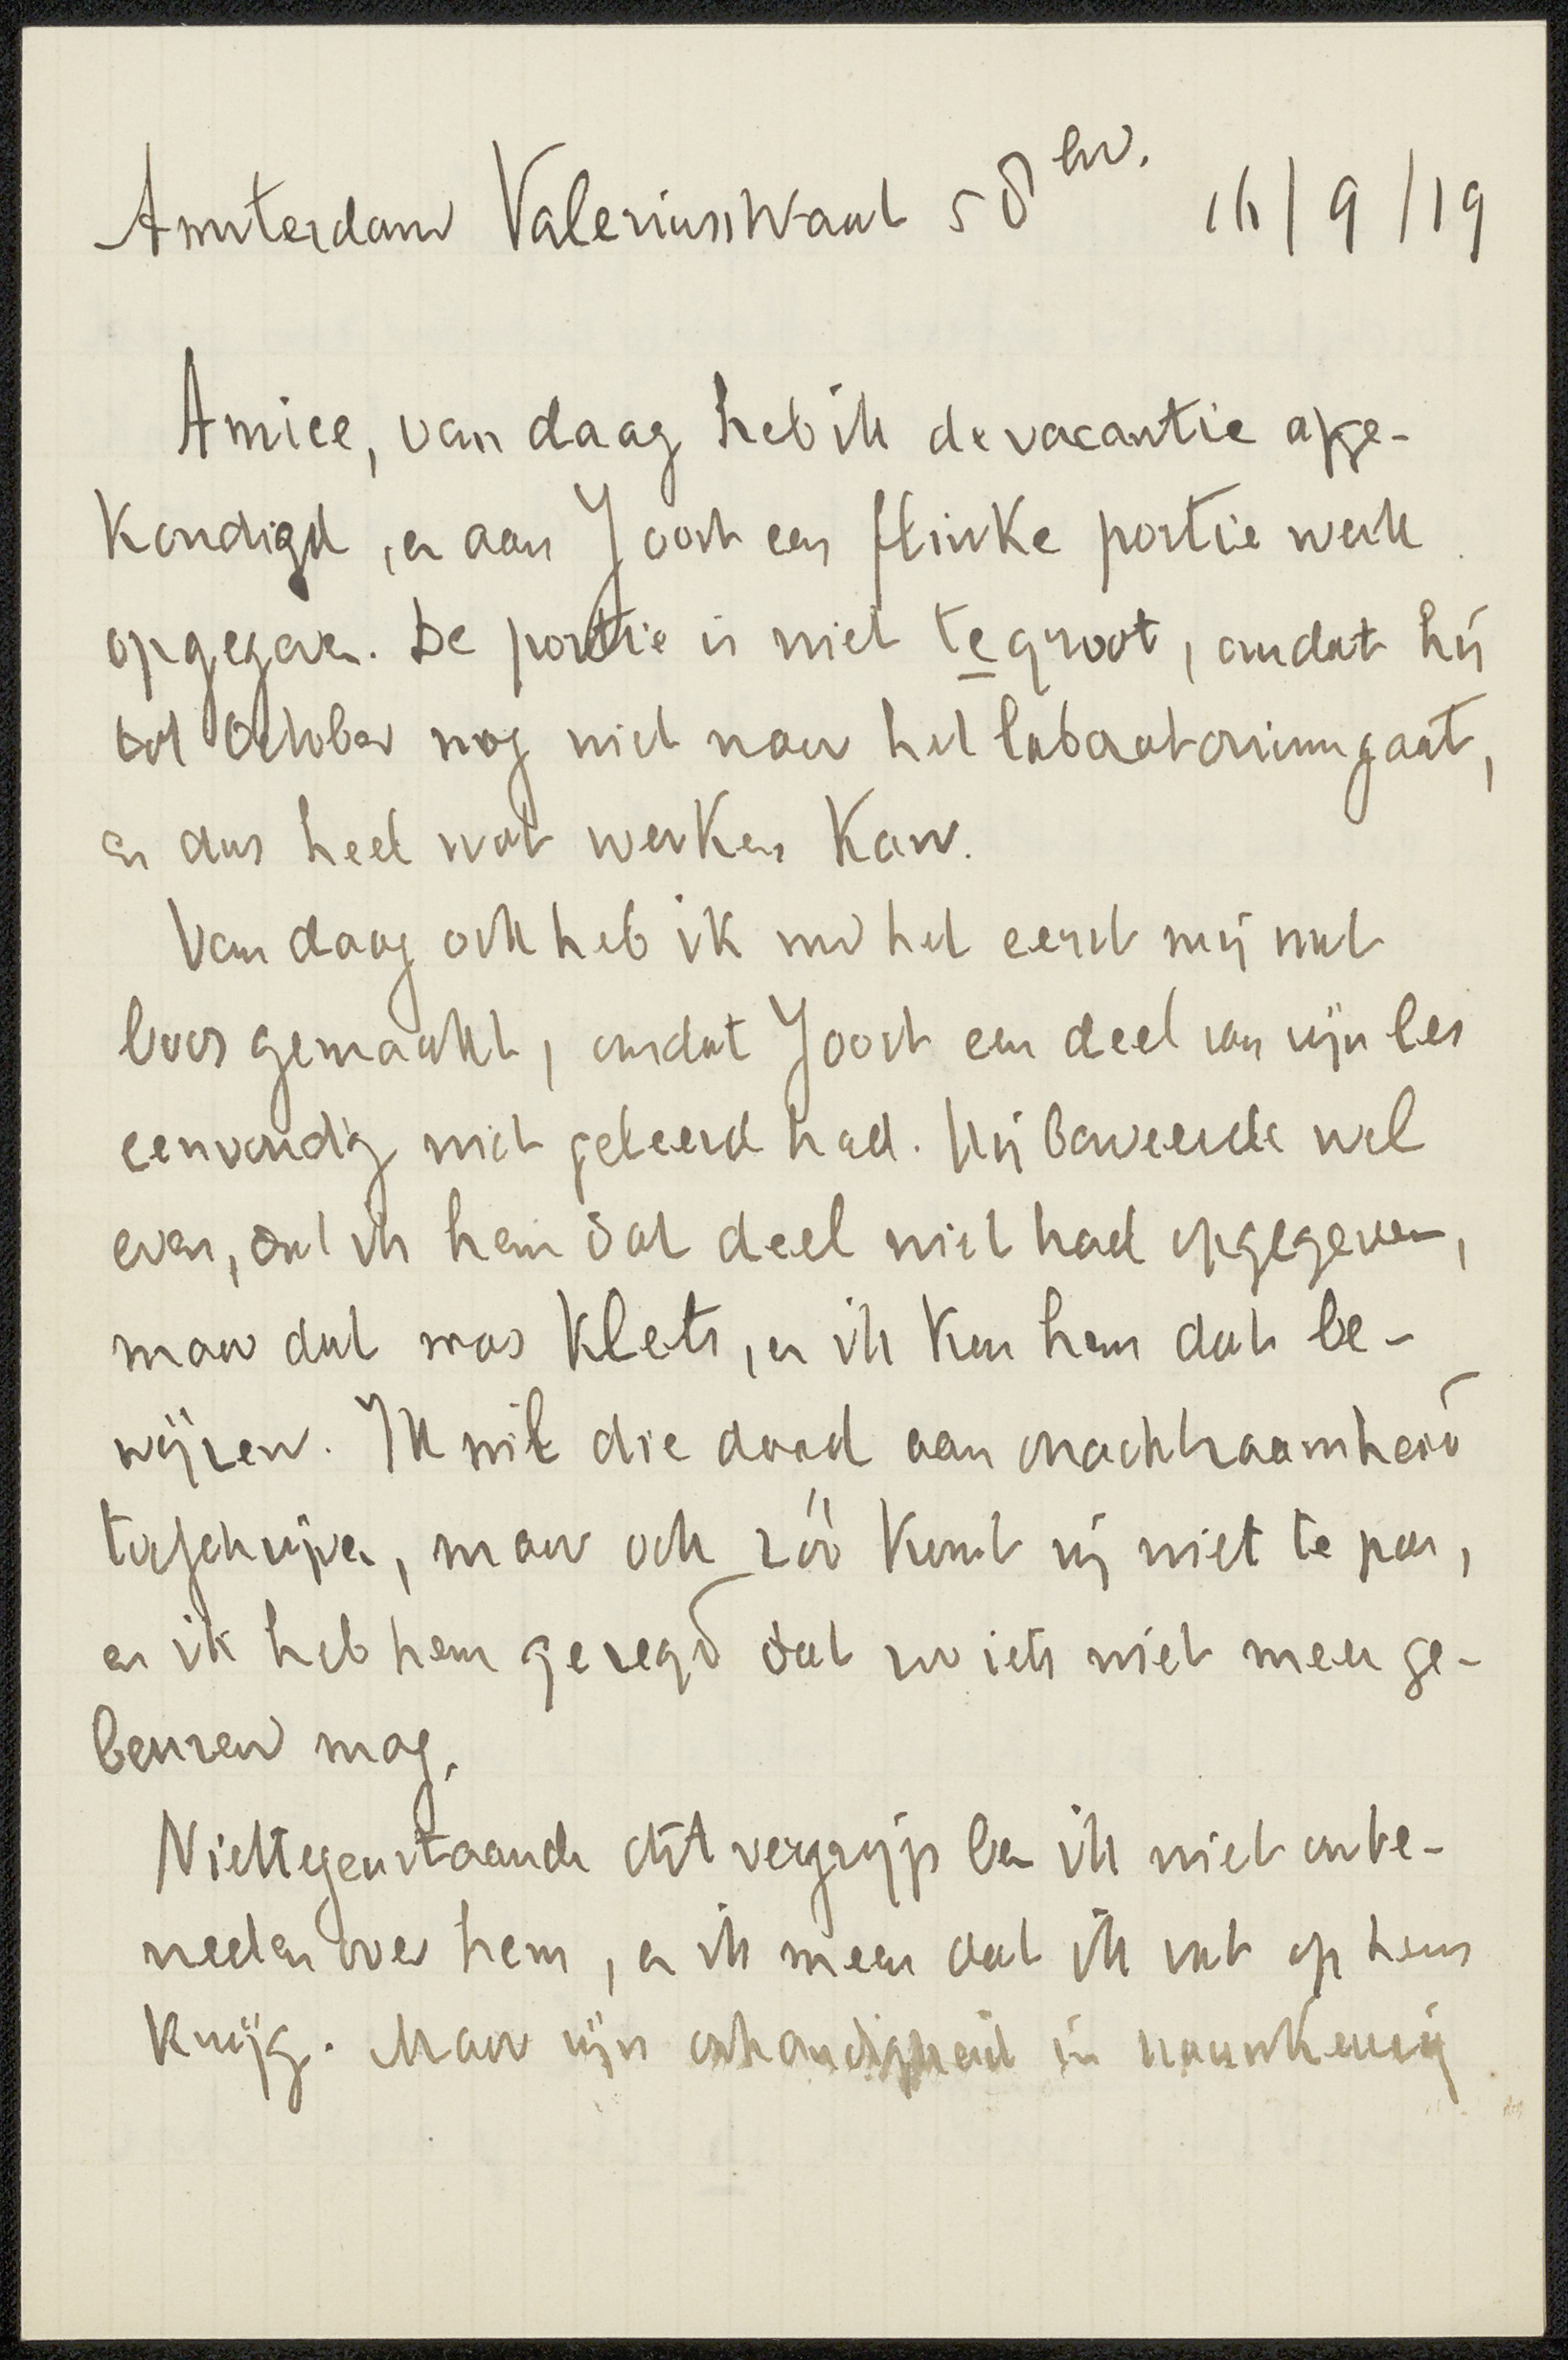 Amsterdam Valeriusstraat 58 hs. 16/9/19
Amice, van daag heb ik de vacantie afge-
kondigd, en aan Joost een flinke portie werk
opgegeven. De portie is niet te groot, omdat hij
tot October nog niet naar het laboratorium gaat,
en dus heel wat werken kan.
Van daag ook heb ik voor het eerst mij wat
boos gemaakt, omdat Joost een deel van zijn les
eenvoudig niet geleerd had. Hij beweerde wel
even, dat ik hem dat deel niet had opgegeven,
maar dat was klets, en ik kon hem dat be-
wijzen. Ik wil die daad aan onachtzaamheid
toeschrijven, maar ook zóó komt zij niet te pas,
en ik heb hem gezegd dat zo iets niet meer ge-
beuren mag.
Niettegenstaande dit vergrijp ben ik niet onte-
vreden over hem, en ik meen dat ik vat op hem
krijg. Maar zijn onhandigheid in nauwkeurig